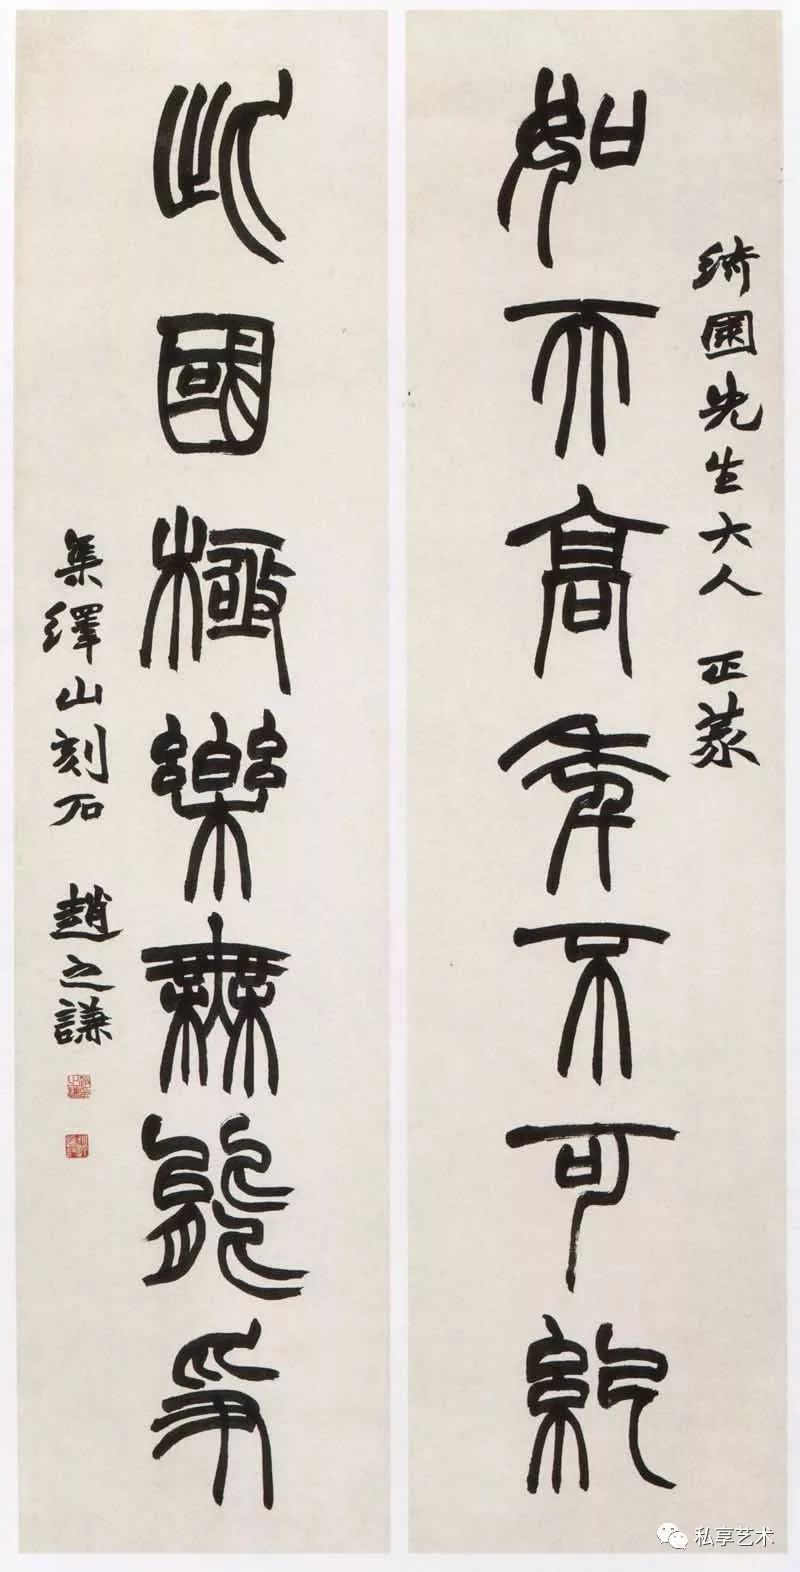 綺園先生大人 正篆
如天高年不可紀
此國極樂無能爲
集繹山刻石 趙之謙
私享艺术